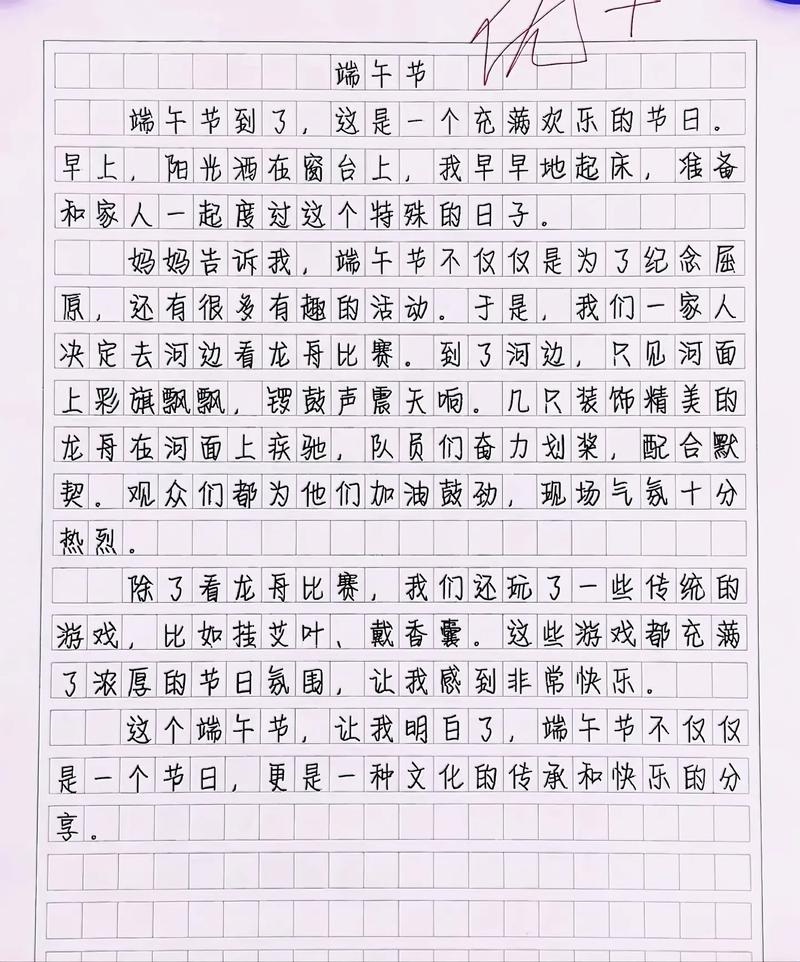 优+
端午节
端午节到了，这是一个充满欢乐的节日。
早上，阳光洒在窗台上，我早早地起床，准备
和家人一起度过这个特殊的日子。
妈妈告诉我，端午节不仅仅是为了纪念屈
原，还有很多有趣的活动。于是，我们一家人
决定去河边看龙舟比赛。到了河边，只见河面
上彩旗飘飘，锣鼓声震天响。几只装饰精美的
龙舟在河面上疾驰，队员们奋力划桨，配合默
契。观众们都为他们加油鼓劲，现场气氛十分
热烈。
除了看龙舟比赛，我们还玩了一些传统的
游戏，比如挂艾叶、戴香囊。这些游戏都充满
了浓厚的节日氛围，让我感到非常快乐。
这个端午节，让我明白了，端午节不仅仅
是一个节日，更是一种文化的传承和快乐的分
享。